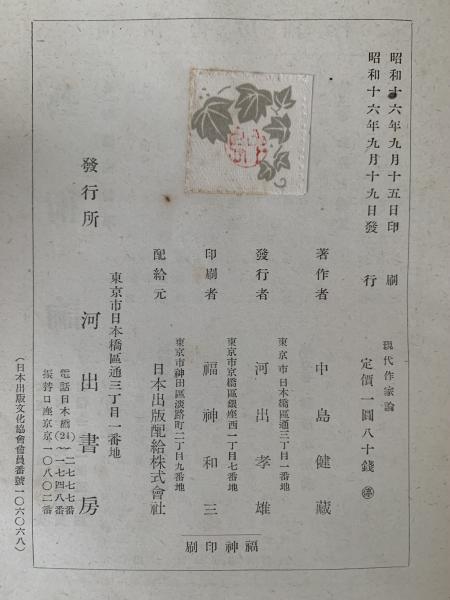 昭和十六年九月十五日印刷
昭和十六年九月十九日發行
現代作家論
定價一圓八十錢 停
著作者 中島健藏
東京市日本橋區通三丁目一番地
發行者 河出孝雄
東京市京橋區銀座西一丁目七番地
印刷者 福神和三
東京市神田區淡路町二丁目九番地
配給元 日本出版配給株式會社
東京市日本橋區通三丁目一番地
發行所 河出書房
電話日本橋(24){二七七七番 一七四八番
振替口座東京一〇八〇二番
(日本出版文化協會會員番號一〇六〇六八)
福神印刷